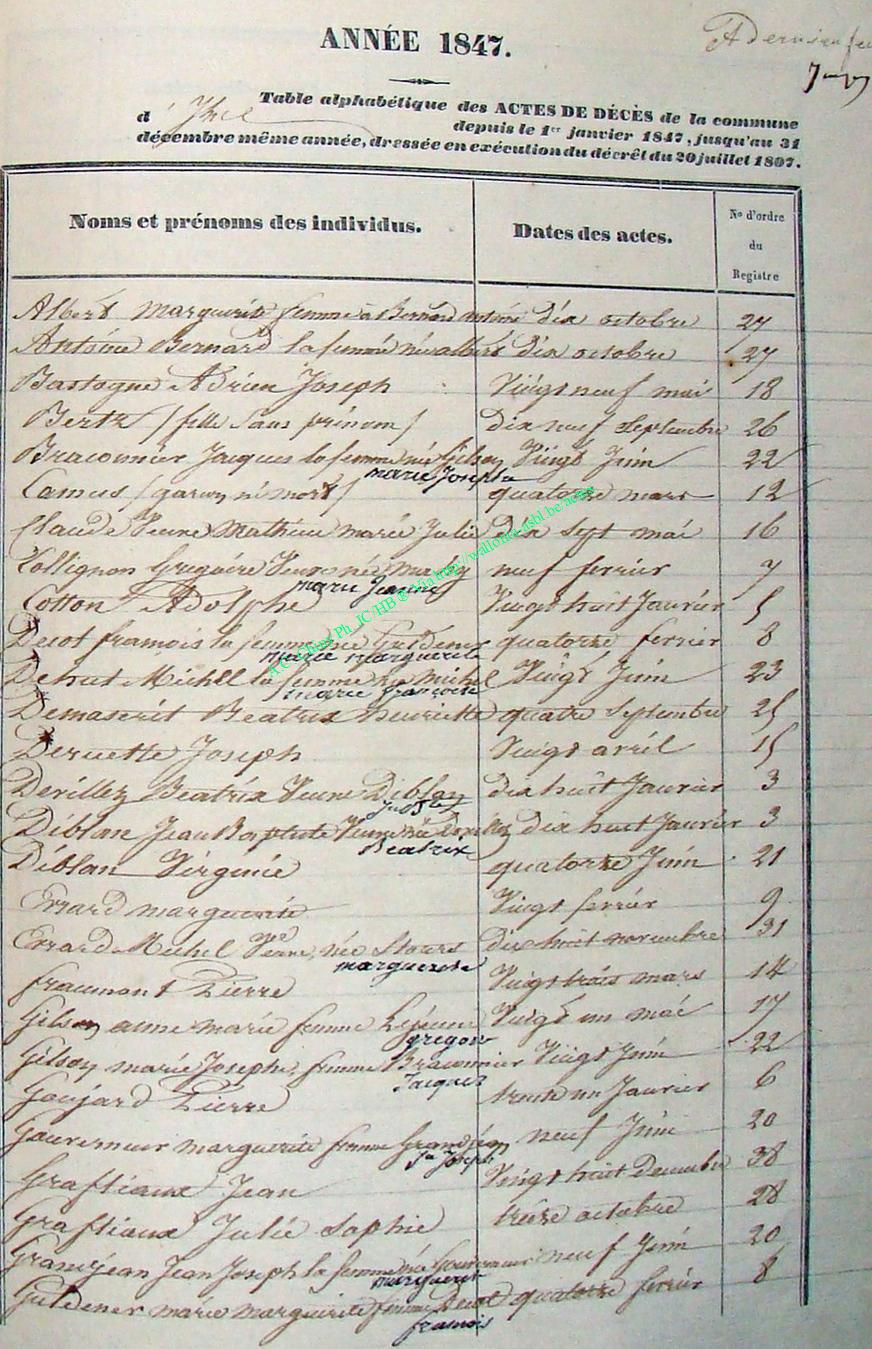 ANNÉE 1847.
Table alphabétique des ACTES DE DÉCÈS de la commune
d' depuis le 1er janvier 1847, jusqu'au 31
décembre même année, dressée en exécution du décrêt du 20 juillet 1807.
Noms et prénoms des individus. Dates des actes. No d'ordre du Registre
Albert marguerite femme à Bernard Antoine dix octobre 27
Antoine Bernard la femme née albert dix octobre 27
Bastogne Adrien Joseph Vingt neuf mai 18
Bertz / fille sans prénom / dix neuf septembre 26
Braconnier Jacques la femme née Gilson Vingt Juin 22
marie Josephe
Camus / garçon né mort / quatorze mars 12
Claude Veuve Mathieu marie Julie dix sept mai 16
Collignon Gregoire Veuve née Mahy neuf ferrier 7
marie Jeanne
Cotton Adolphe Vingt huit Janvier 5
Decot francois la femme née Guldener quatorze ferrier 8
marie marguerite
Dehut Michel la femme née Michel Vingt Juin 23
marie francoise
Demaserit Beatrix henriette quatre septembre 25
Deruette Joseph Vingt avril 15
Devillez Beatrix Veuve Diblan dix huit Janvier 3
Diblan Jean Baptiste Veuve née dix huit Janvier 3
Beatrix
Diblan Virginie quatorze Juin 21
Errard marguerite Vingt ferrier 9
Errard Michel Veuve née Stours dix huit novembre 31
marguerite
fraumont Pierre Vingt trois mars 14
Gilson anne marie femme Lejeune Vingt un mai 17
gregoire
Gilson marie Josephe femme Braconnier Vingt Juin 22
Jacques
Goujard Pierre trente un Janvier 6
Gouverneur marguerite femme Grandjean neuf Juin 20
Jn Joseph
Graftiaux Jean Vingt huit Decembre 38
Graftiaux Julie Sophie treize octobre 28
Grandjean Jean Joseph la femme née Gouverneur neuf Juin 20
marguerite
Guldener marie marguerite femme Decot quatorze ferrier 8
francois